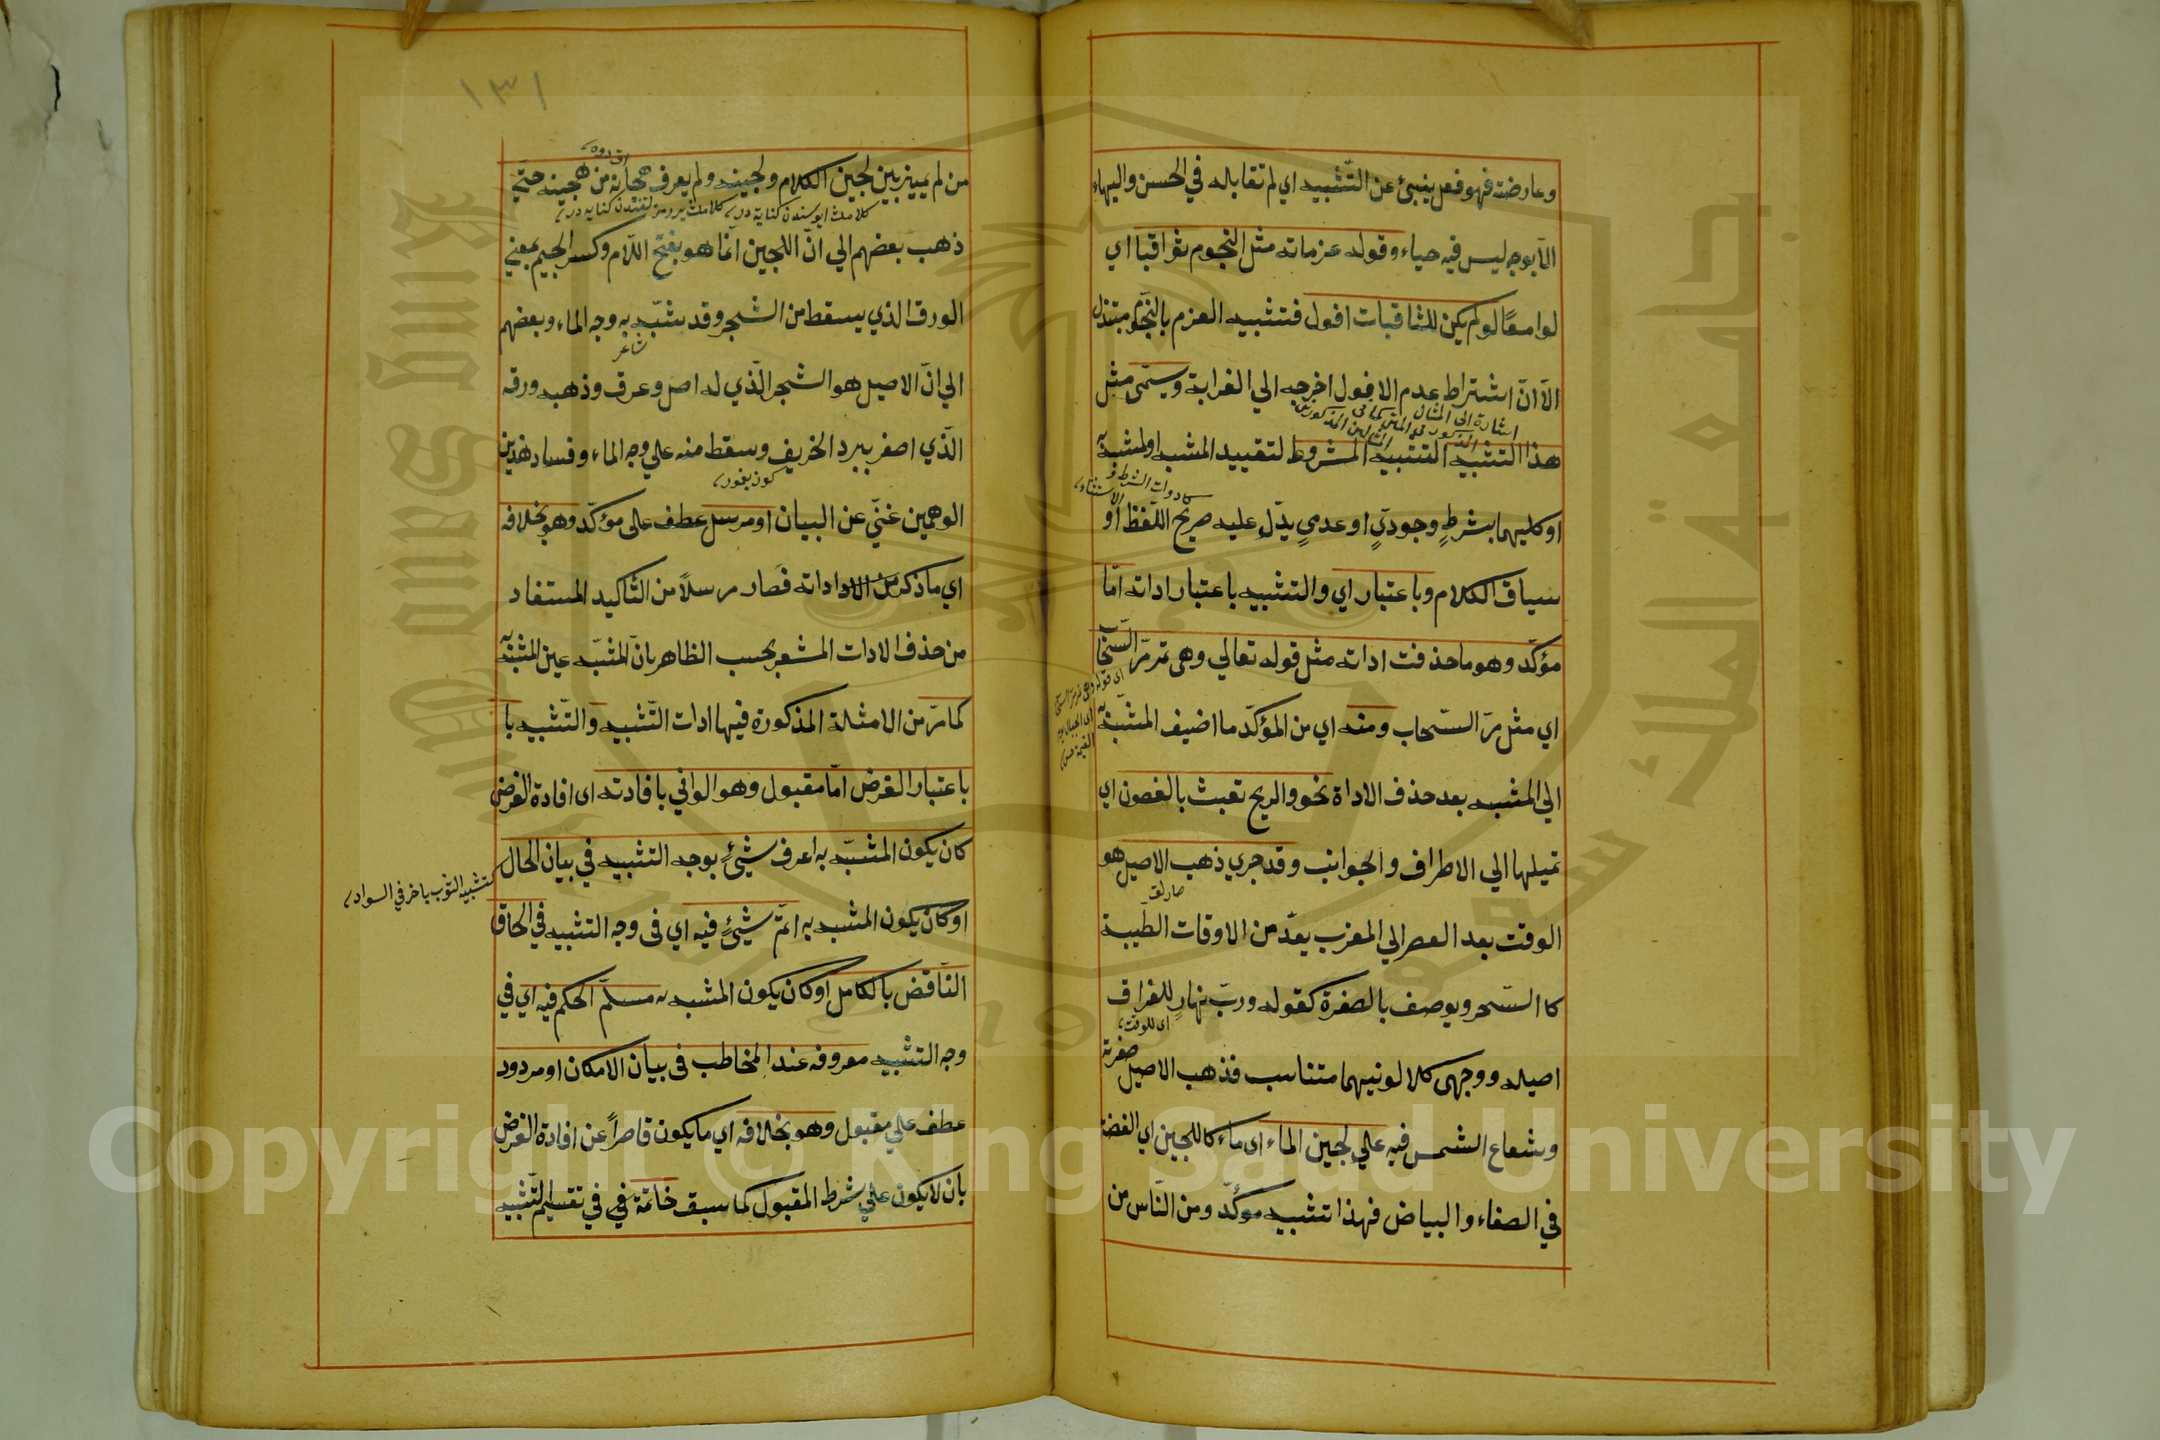 وعارضته فهو فعل ينبئ عن التّشبيه اي لم تقابله في الحسن والبهاء
الّا بوجه ليس فيه حياء وقوله عزماته مثل النجوم ثواقبا اي
لوامعًا لو لم يكن للثاقبات افول فتشبيه العزم بالنّجم مبتذل
الّا انّ اشتراط عدم الافول اخرجه الي الغرابة ويسمّى مثل
اشارة الى المثال
هذا التشبيه التشبيه المشروط لتقييد المشبه او المشبه به
كادوات الشرط و الاستثناء
او كليهما بشرطٍ وجوديّ او عدميّ يدّل عليه صريح اللّفظ او
سياق الكلام وباعتبار اي والتشبيه باعتبار اداته امّا
مؤكّد وهو ما حذفت اداته مثل قوله تعالي وهى تمرّ مرّ السّحاب
اي مثل مرّ السّحاب ومنه اي من المؤكّد ما اضيف المشبّه به
الي المشبه بعد حذف الاداة نحو والريح تعبث بالغصون اي
تميلها الي الاطراف والجوانب وقد جري ذهب الاصيل هو
الوقت بعد العصر الي المغرب يعدّ من الاوقات الطّيبة
كا السّحر ويوصف بالصفرة كقوله وربّ نهارٍ للفراق
اى للوقت
اصيله ووجهى كلا لونيهما متناسب فذهب الاصيل صفرته
وشعاع الشمس فيه علي لجين الماء اى ماء كاللجين اي الفضة
في الصفاء والبياض فهذا تشبيه مؤكّد ومن النّاس من
١٣١
من لم يميز بين لجين الكلام ولجينه ولم يعرف هجانه من هجينه حتّي
ذهب بعضهم الي انّ اللجين انّما هو بفتح اللّام وكسر الجيم بمعني
الورق الذي يسقط من الشجر وقد شبّه به وجه الماء وبعضهم
شاعر
الي انّ الاصيل هو الشجر الّذي له اصل وعرق وذهبه ورقه
الّذي اصفر ببرد الخريف وسقط منه علي وجه الماء وفساد هذين
الوهمين غنيّ عن البيان او مرسل عطف على مؤكّد وهو بخلافه
اي ما ذكر اداته فصار مرسلاً من التّاكيد المستفاد
من حذف الادات المشعر بحسب الظاهر بانّ المشبّه عين المشبّه به
كما مرّ من الامثلة المذكورة فيها ادات التّشبيه والتّشبيه با
باعتبار الغرض امّا مقبول وهو الوافي بافادته اى افادة الغرض
كان يكون المشبّه به اعرف شيئٍ بوجه التشبيه في بيان الحال
كتشبيه الثوب باخر في السواد
او كان يكون المشبه به اتمّ شيئٍ فيه اي فى وجه التشبيه في الحاق
النّاقص بالكامل او كان يكون المشبه به مسلّم الحكم فيه اي في
وجه التشبيه معروفه عند المخاطب فى بيان الامكان او مردود
عطف علي مقبول وهو بخلافه اي ما يكون قاصراً عن افادة الغرض
بان لا يكون علي شرط المقبول كما سبق خاتمة في في تقسيم التّشبيه
Copyright © King Saud University
جامعة الملك سعود
King Saud University
1957